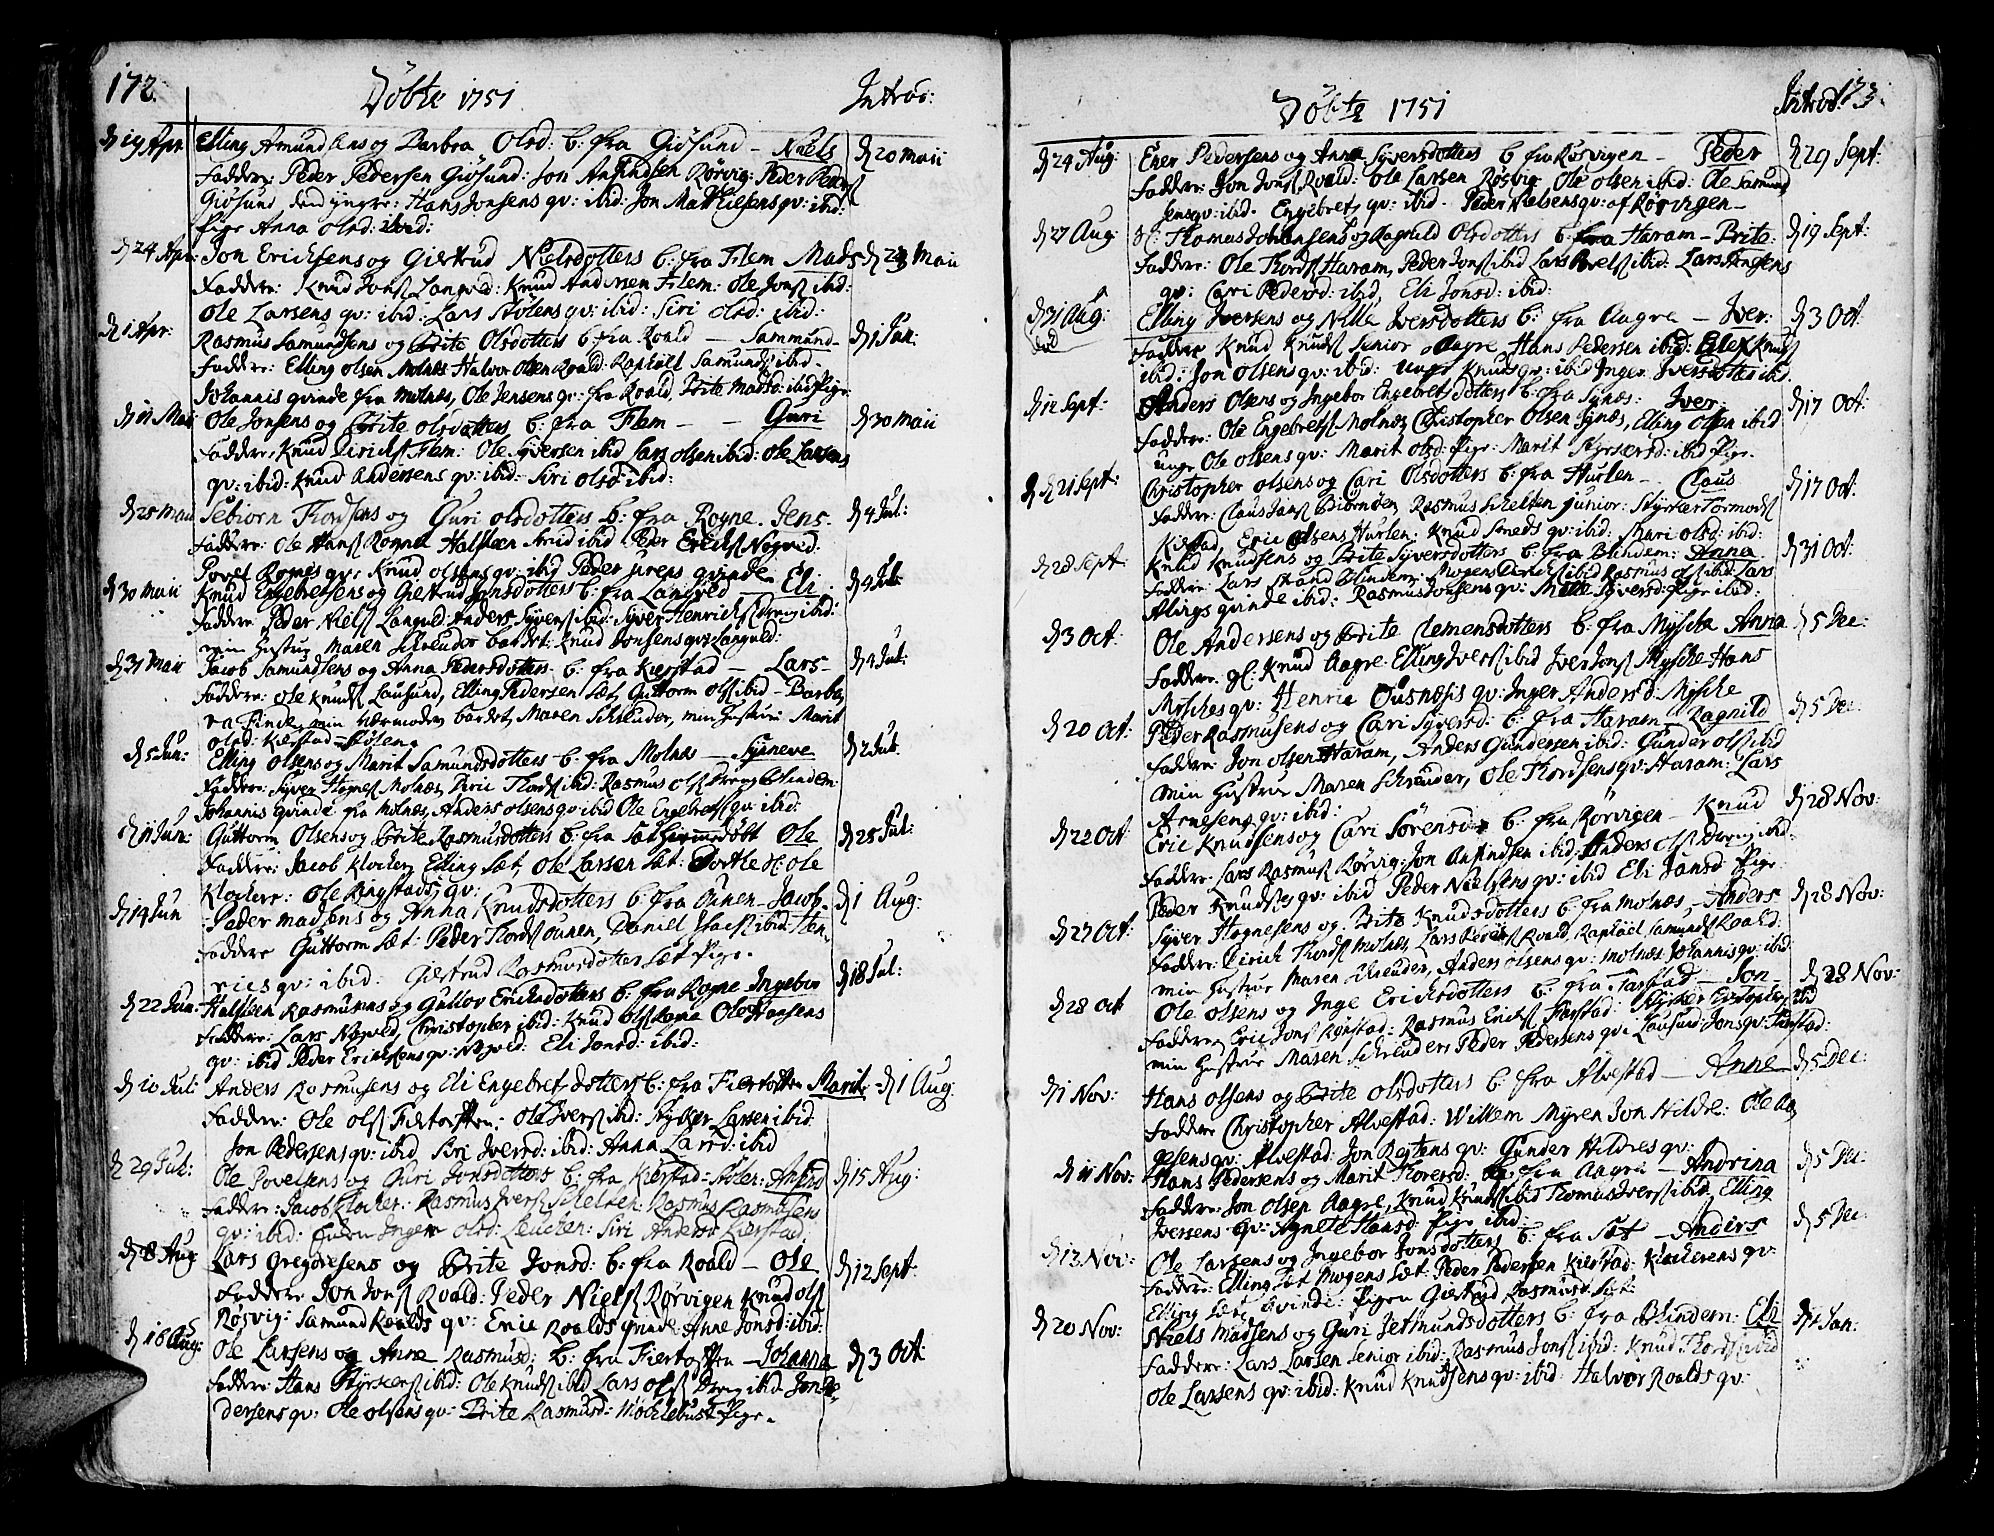 172.
Döbte 1751
Introd:
d 19 Apr Elling Amundsens og Barbra Olsd: b: fra Giösund – Niels d 20 Maii
Faddere: Peder Pedersen Giösund: Jon Anfindsen Rörvig: Peder Peders
Giösund den yngre: Hans Jonsens qv: ibid: Jon Mathiesens qv: ibid:
Pige Anna Olsd: ibid:
d 24 Apr: Jon Ericksens og Giertrud Nielsdotters b: fra Flem Mads d 23 Maii
Faddere: Knud Jons Langved: Knud Andersen Flem: Ole Jons ibid:
Ole Larsens qv: ibid: Lars Stölens qv: ibid: Siri Olsd: ibid:
d 1 Apr: Rasmus Samundsens og Brite Olsdotters b fra Roald – Sammund – d 1 Jun.
Faddere: Elling Olsen Molnes: Halvor Olsen Roald: Raphäel Samunds ibid.
Johannis qvinde fra Molnæs, Ole Jensens qv: fra Roald Brite Madsd: ibid Pige
d 11 Maii Ole Jonsens og Brite Olsdotters b: fra Flem – – Guri d 30 Maii
Faddere, Knud Dirichs Flem: Ole Syversen ibid Lars Olsen ibid: Ole Larsens
qv: ibid: Knud Andersens qv: ibid: Siri Olsd ibid:
d 25 Maii Sebiorn Thordsens og Guri Olsdotters b: fra Rogne. Jens. d 4 Jul:
Faddere: Ole Hans Rogne Halsteen ibid Peder Ericks Nogved:
Povel Rognes qv: Knud Olsens qv: ibid Peder qvinde
d 30 Maii Knud Engebretsens og Giertrud Jonsdotters b: fra Langved – Eli d 4 Jul:
Faddere Peder Niels Langved: Anders Syvers ibid: Syver Henrichs Dreng ibid:
min Hustru Maren Schreuder baaret: Knud Jonsens qv: Langved:
d 31 Maii Jacob Samundsens og Anna Pedersdotters b: fra Kierstad – Lars d 4 Jul:
Faddere: Ole Knuds Lausund, Elling Pedersen Sæt, Guttorm Ols ibid – Barba
ra Finde, min Værmoder baaret, Maren Schreuder, min Hustrue Marit
Olsd: Kierstad-Stölen
d 5 Jun: Elling Olsens og Marit Samundsdotters b: fra Molnæs – Synneve d 2 Jul:
Faddere: Syver Hognes Molnes, Diric Thords ibid: Rasmus Ols Dreng Blindem
Johannis qvinde fra Molnes, Anders Olsens qv: ibid Ole Engebrets qv: ibid:
d 11 Jun: Guttorm Olsens og Brite Rasmusdotters b: fra Sæt hiemedöbt Ole d 25 Jul:
Faddere: Jacob Klocker, Elling Sæt, Ole Larsen Sæt: Dorthe Ole
Klockere: Ole Ringstads qv:
d 14 Jun Peder Madsens og Anna Knudsdotters b: fra Ounen – Jacob d 1 Aug:
Faddere Guttorm Sæt: Peder Thords Ounen, Daniel ibid: Hen
rics qv: ibid: Giertrud Rasmusdotter Sæt Pige.
d 22 Jun: Halsteen Rasmusens og Gullov Ericksdotters b: fra Rogne Ingebor d 18 Jul:
Faddere: Lars Nogved, Christopher ibid: Knud Ols Rogne Ole Hansens
qv: ibid Peder Ericksens qv: Nogved: Eli Jonsd: ibid:
d 10 Jul: Anders Rasmusens og Eli Engebretsdotters b: fra Fiertoften Marit – d 1 Aug:
Faddere: Ole Ols Fiertoften: Ole Ivers ibid: Styrker Larsen ibid:
Jon Pedersens qv: ibid Siri Iversd: ibid: Anna Larsd: ibid
d 29 Jul: Ole Povelsens og Guri Jonsdotters b: fra Kierstad-Stölen: Anfind d 15 Aug:
Faddere: Jacob Klocker: Rasmus Ivers Schelten: Rasmus Rasmusens
qv: ibid: Inger Olsd: Siri Andersd Kierstad:
d 8 Aug Lars Gregoriesens og Brite Jonsd: b: fra Roald – Ole d 12 Sept:
Faddere Jon Jons Roald: Peder Niels Rörvigen Knud Ols
Rörvig: Samund Roalds qv: Eric Roalds qvinde: Anne Jonsd: ibid:
d 16 Aug: Ole Larsens og Anne Rasmusd: b: fra Fiertoften – Johanna d 3 Oct:
Faddere: Hans Styrkers ibid: Ole Knuds ibid Lars Ols Dreng ibid Jon Pe
dersens qv: Ole Olsens qv: Brite Rasmusd: Mochlebust Pige.
173.
Döbte 1751
Introd:
d 24 Aug: Ener Pedersens og Anna Syversdotters b fra Rörvigen – Peder d 29 Sept:
Faddere: Jon Jons Roald: Ole Larsen Rörvig Ole Olsen ibid: Ole Samund
sens qv: ibid. Engebret qv: ibid. Peder Nielsens qv: af Rörvigen –
d 27 Aug Thomas Johansens og Ragnild Olsdotters b: fra Haram – Brite d 19 Sept:
Faddere: Ole Thords Haram, Peder Jons ibid Lars Povels ibid: Lars Jensens
qv: Cari Pedersd: ibid, Eli Jonsd: ibid:
d 31 Aug: Elling Iversens og Nille Iversdotters b: fra Aagre – Iver: d 3 Oct
Faddere Knud Knuds Senior Aagre Hans Pedersen ibid: Knuds
ibid: Jon Olsens qv: ibid: unge Knuds qv: ibid Inger Iversdotter ibid.
d 12 Sept: Anders Olsens og Ingebor Engebretsdotters b: fra Synæs: Iver: d 17 Oct:
Faddere: Ole Engebrets Molnæs Christopher Olsen Synæs, Elling Olsen ibid
unge Ole Olsens qv: Marit Olsd: Pige: Marit Styrkersd: ibid Pige.
d 21 Sept: Christopher Olsens og Cari Olsdotters b: fra Hurlen – Claus d 17 Oct:
Faddere: Claus Jans Rasmus Schelten junior: Styrker Tormods
Kistad, Eric Olsens Hurlen: Knud Smeds qv: ibid: Mari Olsd: ibid:
d 28 Sept Knud Knudsens og Brite Syversdotters b: fra Blindem: Anna d 31 Oct:
Faddere: Lars Strand Blindem: Mogens ibid Rasmus Ols ibid: Lars
qvinde ibid: Rasmus Jonsens qv: Mille Syversd: Pige ibid:
d 3 Oct: Ole Andersens og Brite Clemensdotters b: fra Mysche Anna d 5 Dec:
Faddere: gl: Knud Aagre Elling Ivers ibid Iver Jons Mysche Hans
Mysches qv: Henric Ousnæsis qv: Inger Andersd: Mysche
d 20 Oct: Peder Rasmusens og Cari Syversd: b: fra Haram – Ragnild d 5 Dec:
Faddere: Jon Olsen Haram, Anders Gundersen ibid: Gunder Ols ibid
Min Hustrue Maren Schreuder, Ole Thordsens qv: Haram: Lars
Arnesens qv: ibid:
d 22 Oct Eric Knudsens og Cari Sörensd: b: fra Rörvigen – Knud d 28 Nov:
Faddere: Lars Rasmus Rörvig: Jon Anfindsen ibid: Anders Ols Dreng ibid:
Peder Knudsens qv: ibid Peder Nielsens qv: ibid Eli Jansd Pige
d 27 Oct: Syver Hognesens og Brite Knudsdotters b: fra Molnæs, – Anders d 28 Nov:
Faddere: Dirich Thords Molnæs, Lars Roald, Raphäel Samunds Roald:
min Hustrue Maren Schreuder, Anders Olsens qv: Molnæs Johannis qv: ibid
d 28 Oct Ole Olsens og Inge Ericksdotters b: fra Farstad – Jon – d 28 Nov:
Faddere, Eric Jons Rönstad: Rasmus Ericks Farstad: Styrker ibid
min Hustrue Maren Schreuder: Peder Pedersens qv: Lausund: Jons qv: Farstad:
d 1 Nov: Hans Olsens og Brite Olsdotters b: fra Alvestad – Anne d 5 Dec:
Faddere Christopher Alvestad: Willem Myren Jon Hildre: Ole Aa
gesens qv: Alvestad: Jon Regtens qv: Gunder Hildres qv:
d 11 Nov: Hans Pedersens og Marit Floresd: b: fra Aagre – Andrina d 5 Dec:
Faddere: Jon Olsen Aagre, Knud Knuds ibid Thomas Ivers ibid: Elling
Iversens qv: Agnete Hansd: Pige ibid:
d 13 Nov: Ole Larsens og Ingebor Jonsdotters b: fra Sæt – Anders d 5 Dec
Faddere: Elling Sæt Mogens Sæt: Peder Pedersen Kierstad: Klockerens qv:
Elling Sæts qvinde: Pigen Giertrud Rasmusd: Sæt:
d 20 Nov: Niels Madsens og Guri Jetmundsdotters b: fra Blindem: Eli d 1 Jan:
Faddere: Lars Larsen Senior ibid: Rasmus Jons ibid: Knud Thords ibid
Ole Larsens qv: ibid: Knud Knudsens qv: ibid: Halvor Roalds qv: